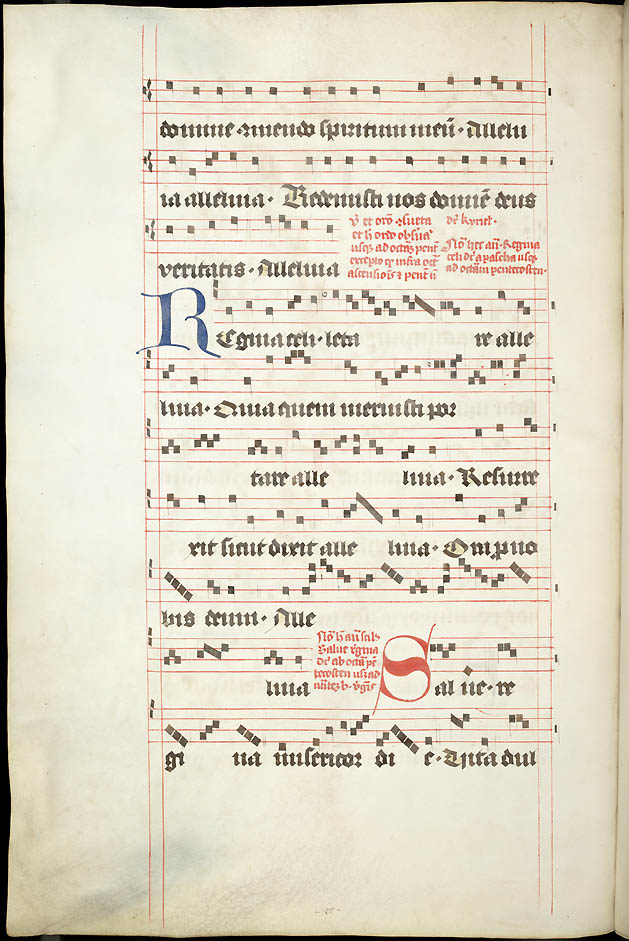 domine · amendo spiritum meū · Allelu
ia alleluia · Redemisti nos domiē deus
veritatis · Alleluia
et
usq; ad octā pent
excepto infra oct
ascensiōis et pent
de Kyriel·
Nō hec añ· Regina
celi dr a pascha usq;
ad octām pentecosten·
REgina celi · leta re alle
luia · Quia quem meruisti por
tare alle luia · Resurre
xit sicut dixit alle luia · Ora pro no
bis deum · Alle
Nō h añ scilz
Salue v̄gina
dr ab octā pe
tecosten usq; ad
luia Sal ue · re
gi na misericor di e · Vita dul